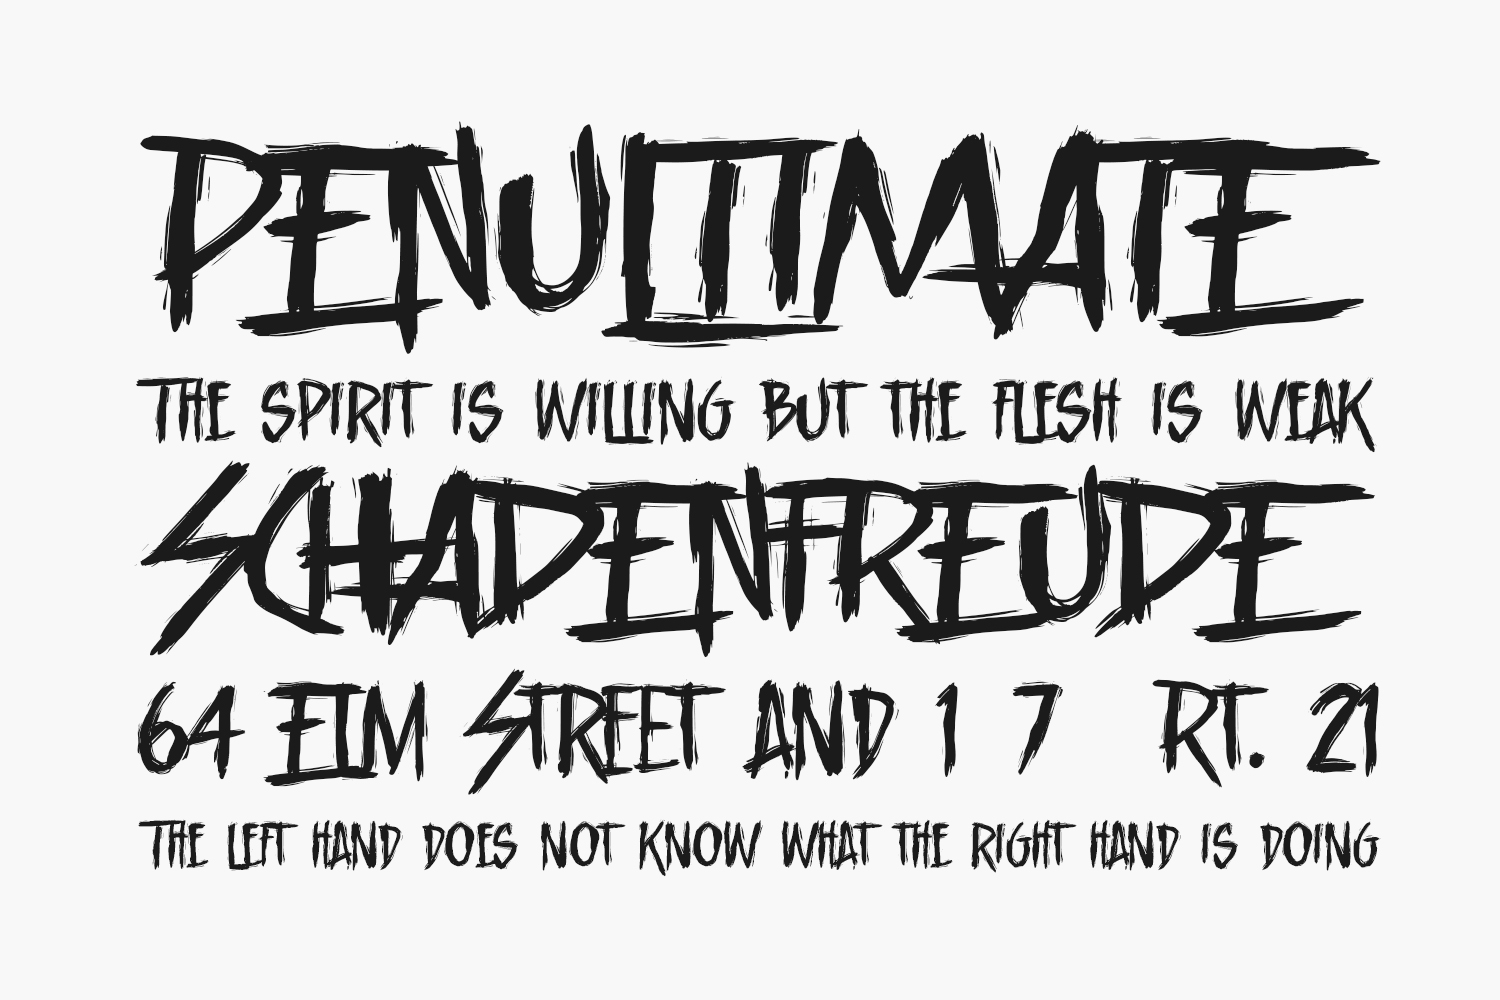 PENULTIMATE
THE SPIRIT IS WILLING BUT THE FLESH IS WEAK
SCHADENFREUDE
64 ELM STREET AND 1 7 RT. 21
THE LEFT HAND DOES NOT KNOW WHAT THE RIGHT HAND IS DOING